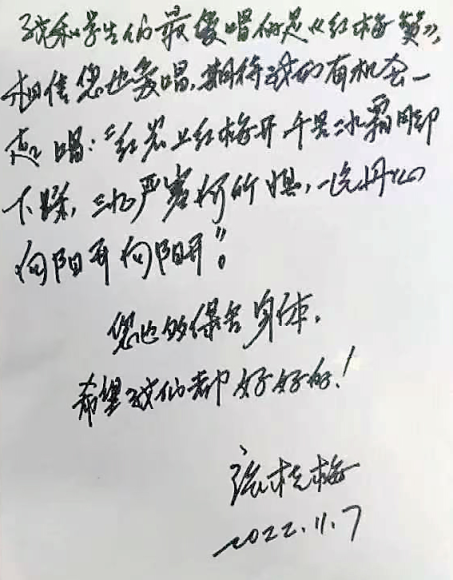 我和学生们最爱唱的是《红梅赞》，
相信您也爱唱，期待我们有机会一
起唱："红岩上红梅开 千里冰霜脚
下踩，三九严寒何所惧，一片丹心
向阳开向阳开"。
您也的保重身体，
希望我们都好好的！
张桂梅
2022.11.7